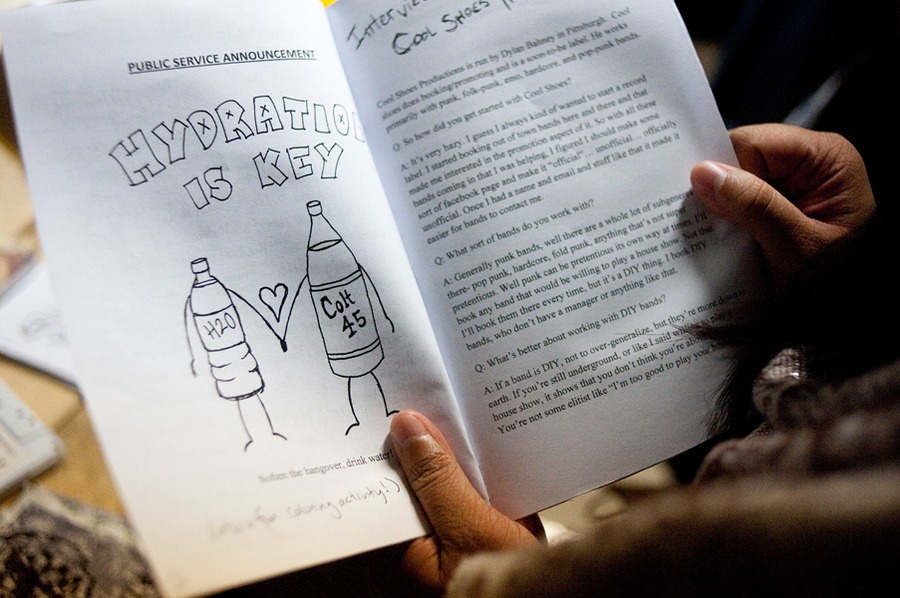 PUBLIC SERVICE ANNOUNCEMENT
HYDRATIO
IS KEY
H2O
Colt
45
Soften the hangover, drink water!
coloring activity!)
Interview
Cool Shoes
Cool Shoes Productions is run by Dylan Bahney in Pittsburgh. Cool
shoes does booking/promoting and is a soon-to-be label. He works
primarily with punk, folk-punk, emo, hardcore, and pop-punk bands.
Q: So how did you get started with Cool Shoes?
A: It's very hazy. I guess I always kind of wanted to start a record
label. I started booking out of town bands here and there and that
made me interested in the promotion aspect of it. So with all these
bands coming in that I was helping, I figured I should make some
sort of facebook page and make it "official"... unofficial... officially
unofficial. Once I had a name and email and stuff like that it made it
easier for bands to contact me.
Q: What sort of bands do you work with?
A: Generally punk bands, well there are a whole lot of subgenres
there- pop punk, hardcore, fold punk, anything that's not super
pretentious. Well punk can be pretentious its own way at times. I'll
book any band that would be willing to play a house show. Not that
I'll book them there every time, but it's a DIY thing. I book DIY
bands, who don't have a manager or anything like that.
Q: What's better about working with DIY bands?
A: If a band is DIY, not to over-generalize, but they're more down to
earth. If you're still underground, or like I said when to play
house show, it shows that you don't think you're
You're not some elitist like "I'm too good to play your